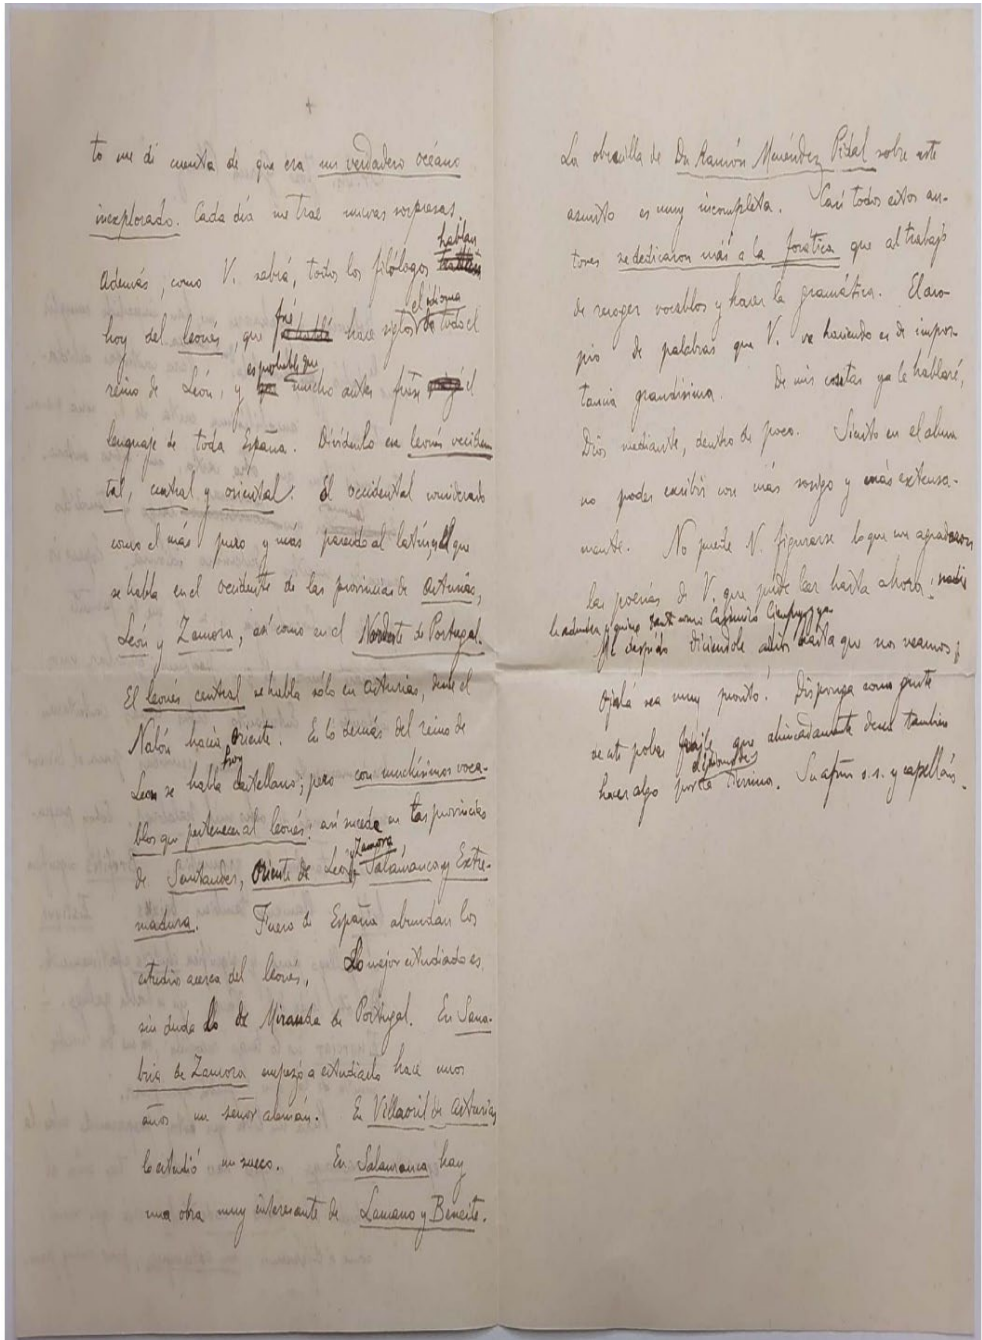 +
to me di cuenta de que era un verdadero océano
inexplorado. Cada día me trae nuevas sorpresas.
Además, como V. sabrá, todos los filólogos hablan
hoy del leonés, que fué hace siglos el idioma de todo el
reino de León, y es probable que mucho antes fuese el
lenguaje de toda España. Divídenlo en leonés occiden
tal, central y oriental. El occidental considerado
como el más puro y más parecido al latín, es el que
se habla en el occidente de las provincias de Asturias,
León y Zamora, así como en el Nordeste de Portugal.
El leonés central se habla sólo en Asturias, desde el
Nalón hacia Oriente. En lo demás del reino de
León se habla hoy castellano; pero con muchísimos voca-
blos que pertenecen al leonés: así sucede en las provincias
de Santander, Oriente de León, Zamora, Salamanca y Extre-
madura. Fuera de España abundan los
estudios acerca del leonés. Lo mejor estudiado es
sin duda lo de Miranda de Portugal. En Sana-
bria de Zamora empezó a estudiarlo hace unos
años un señor alemán. En Villaoril de Asturias
lo estudió un sueco. En Salamanca hay
una obra muy interesante de Lamano y Beneite.
La obrilla de Dn Ramón Menéndez Pidal sobre este
asunto es muy incompleta. Casi todos estos au-
tores se dedicaron más a la fonética que al trabajo
de recoger vocablos y hacer la gramática. El aco-
pio de palabras que V. va haciendo es de impor-
tancia grandísima. De mis cosetas ya le hablaré,
Dios mediante, dentro de poco. Siento en el alma
no poder escribir con más sosiego y más extensa-
mente. No puede V. figurarse lo que me agradaron
las poesías de V. que pude leer hasta ahora: nadie
le admira y quiere tanto como Casimiro Cienfuegos
Me despido diciéndole adios hasta que nos veamos y
ojalá sea muy pronto! Disponga como guste
de este pobre fraile que ahincadamente desea tambien
hacer algo por la Terrina. Su afmo s.s. y capellán.